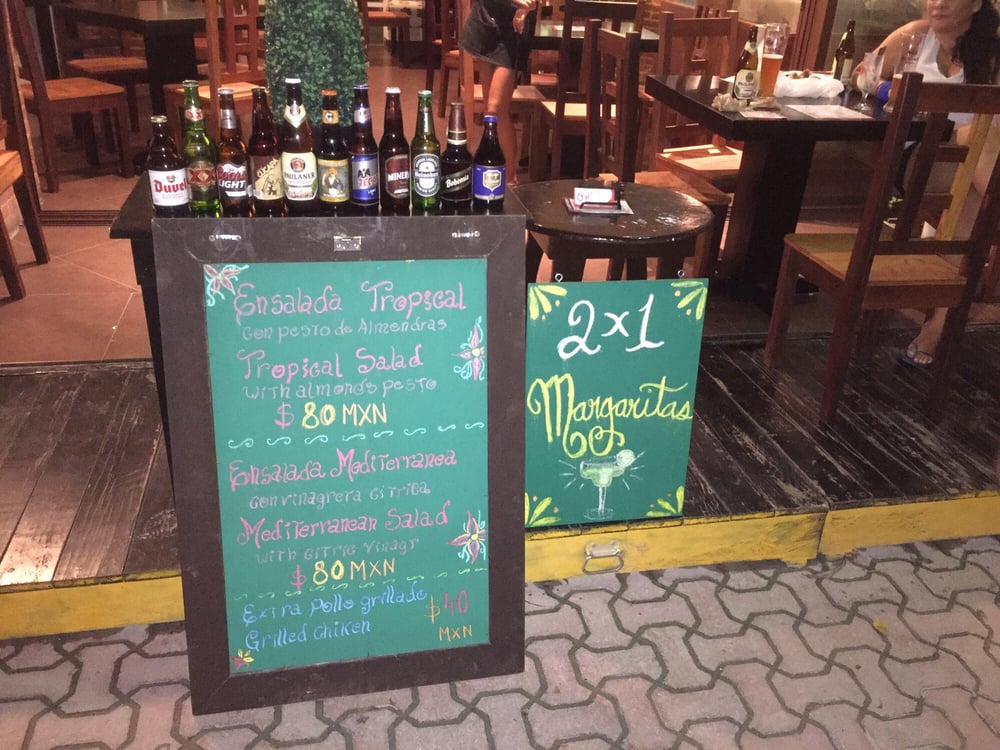 Duvel
XX
Coors
LIGHT
PAULANER
MINERVA
Heineken
Bohemia
Ensalada Tropical
con pesto de Almendras
Tropical Salad
with almond's pesto
$ 80 MXN
Ensalada Mediterranea
con vinagrera Citrica
Mediterranean Salad
with citric vinagr
$ 80 MXN
Extra Pollo grillado $40
Grilled Chiken MXN
2x1
Margaritas